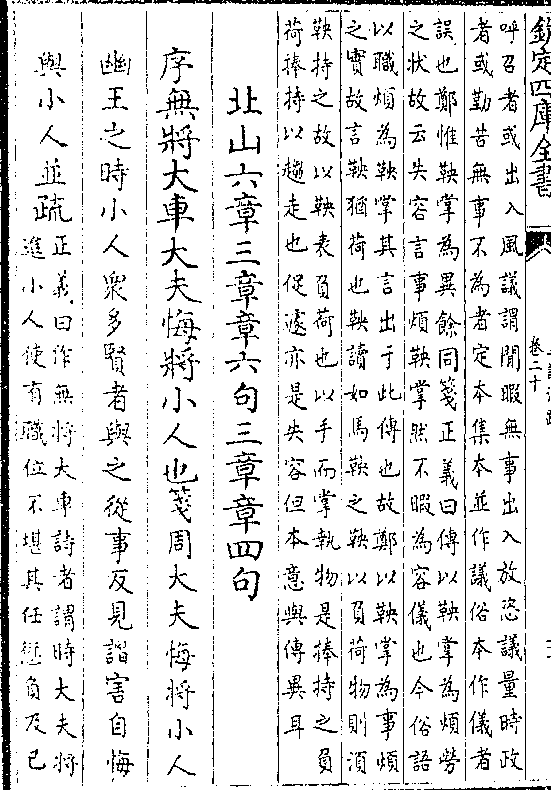 欽定四庫全書
卷二十
呼召者或出入風議謂閒暇無事出入放恣議量時政
者或勤苦無事不為者定本集本並作議俗本作儀者
誤也鄭惟鞅掌為異餘同箋正義曰傳以鞅掌為煩勞
之狀故云失容言事煩鞅掌然不暇為容儀也今俗語
以職煩為鞅掌其言出于此傳也故鄭以鞅掌為事煩
之實故言鞅猶荷也鞅讀如馬鞅之鞅以負荷物則須
鞅持之故以鞅表負荷也以手而掌執物是捧持之負
荷捧持以趨走也促遽亦是失容但本意與傳異耳
北山六章三章章六句三章章四句
序無將大車大夫悔將小人也箋周大夫悔將小人
幽王之時小人衆多賢者與之從事反見譖害自悔
與小人並疏正義曰作無將大車詩者謂時大夫將
進小人使有職位不堪其任愆負及已